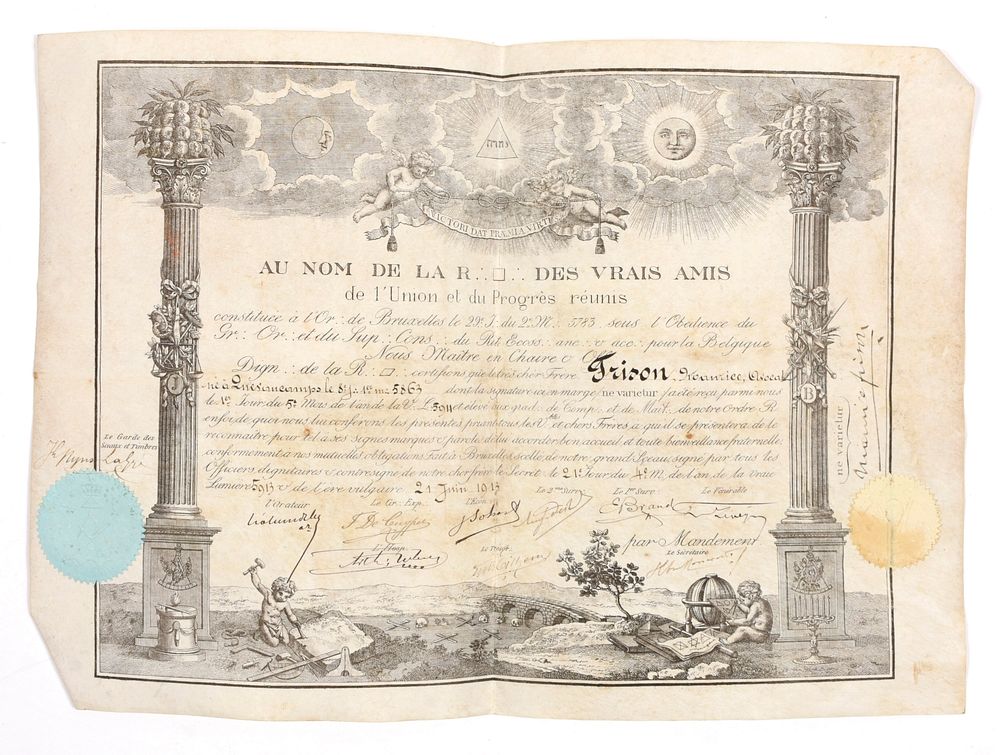 VICTORI DAT PRÆMIA VIRTUS
AU NOM DE LA R∴□∴ DES VRAIS AMIS
de l'Union et du Progrès réunis
constituée à l'Or∴ de Bruxelles le 29e J. du 2e M∴ 5783, sous l'Obédience du
Gr∴ Or∴ et du Sup∴ Cons∴ du Rit Ecoss∴ anc∴ & acc∴ pour la Belgique
Nous Maître en Chaire & Off
Dign∴ de la R∴□∴ certifions que le très cher Frère Frison, Maurice, Oscar
né à Quevaucamps le 8e J∴ 1er m∴ 5863 dont la signature ici en marge ne varietur fa été reçu parmi nous
le 1er Jour du 5e Mois de l'an de la V∴ L∴ 5911 et élevé aux grad∴ de Comp∴ et de Mait∴ de notre Ordre. R
en foi de quoi nous lui conférons les présentes priant tous les V et chers Frères, a qui il se présentera de le
reconnaitre pour tel a ses signes marques & parole & de lui accorder bon accueil et toute bienveillance fraternelle
conformement à nos mutuelles obligations Fait à Bruxelles, scellé de notre grand Sceau, signé par tous les
Officiers, dignitaires & contresigné de notre cher frère le Secrét∴ le 21e Jour du 4e m∴ de l'an de la vraie
Lumière 5913 & de l'ère vulgaire 21 Juin 1913
Le Garde des
Sceaux et Timbres
l'Orateur
Le Gr∴ Exp∴
l'Elém
Le 2me Surv
Le 1er Surv∴
Le Vénérable
par Mandement
Le Secrétaire
ne varietur
J
B